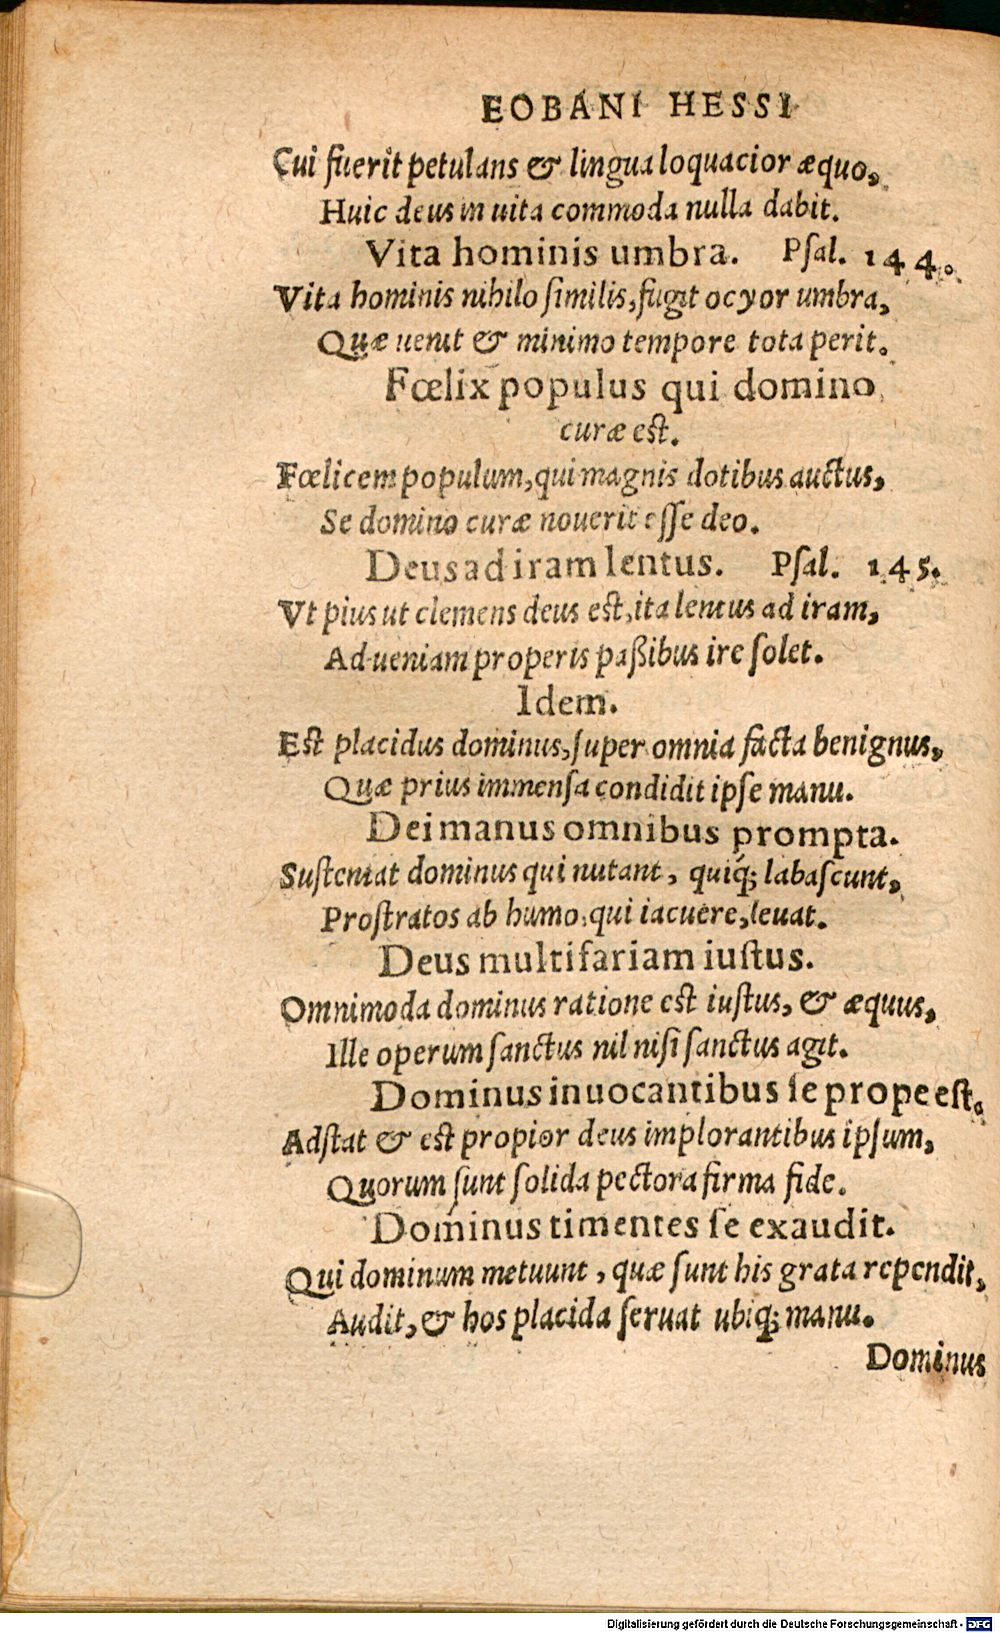 EOBANI HESSI
Cui fuerit petulans & lingua loquacior æquo,
Huic deus in uita commoda nulla dabit.
Vita hominis umbra. Pſal. 144.
Vita hominis nihilo ſimilis, fugit ocyor umbra,
Quæ uenit & minimo tempore tota perit.
Fœlix populus qui domino
curæ est.
Fœlicem populum, qui magnis dotibus auctus,
Se domino curæ nouerit eſſe deo.
Deus ad iram lentus. Pſal. 145.
Vt pius ut clemens deus est, ita lentus ad iram,
Ad ueniam properis paßibus ire ſolet.
Idem.
Est placidus dominus, ſuper omnia facta benignus,
Quæ prius immenſa condidit ipſe manu.
Dei manus omnibus prompta.
Suſtentat dominus qui nutant, quiq́; labaſcunt,
Proſtratos ab humo, qui iacuere, leuat.
Deus multifariam iuſtus.
Omnimoda dominus ratione est iuſtus, & æquus,
Ille operum ſanctus nil niſi ſanctus agit.
Dominus inuocantibus ſe prope eſt.
Adſtat & est propior deus implorantibus ipſum,
Quorum ſunt ſolida pectora firma fide.
Dominus timentes ſe exaudit.
Qui dominum metuunt, quæ ſunt his grata rependit,
Audit, & hos placida ſeruat ubiq; manu.
Dominus
Digitalisierung gefördert durch die Deutsche Forschungsgemeinschaft - DFG